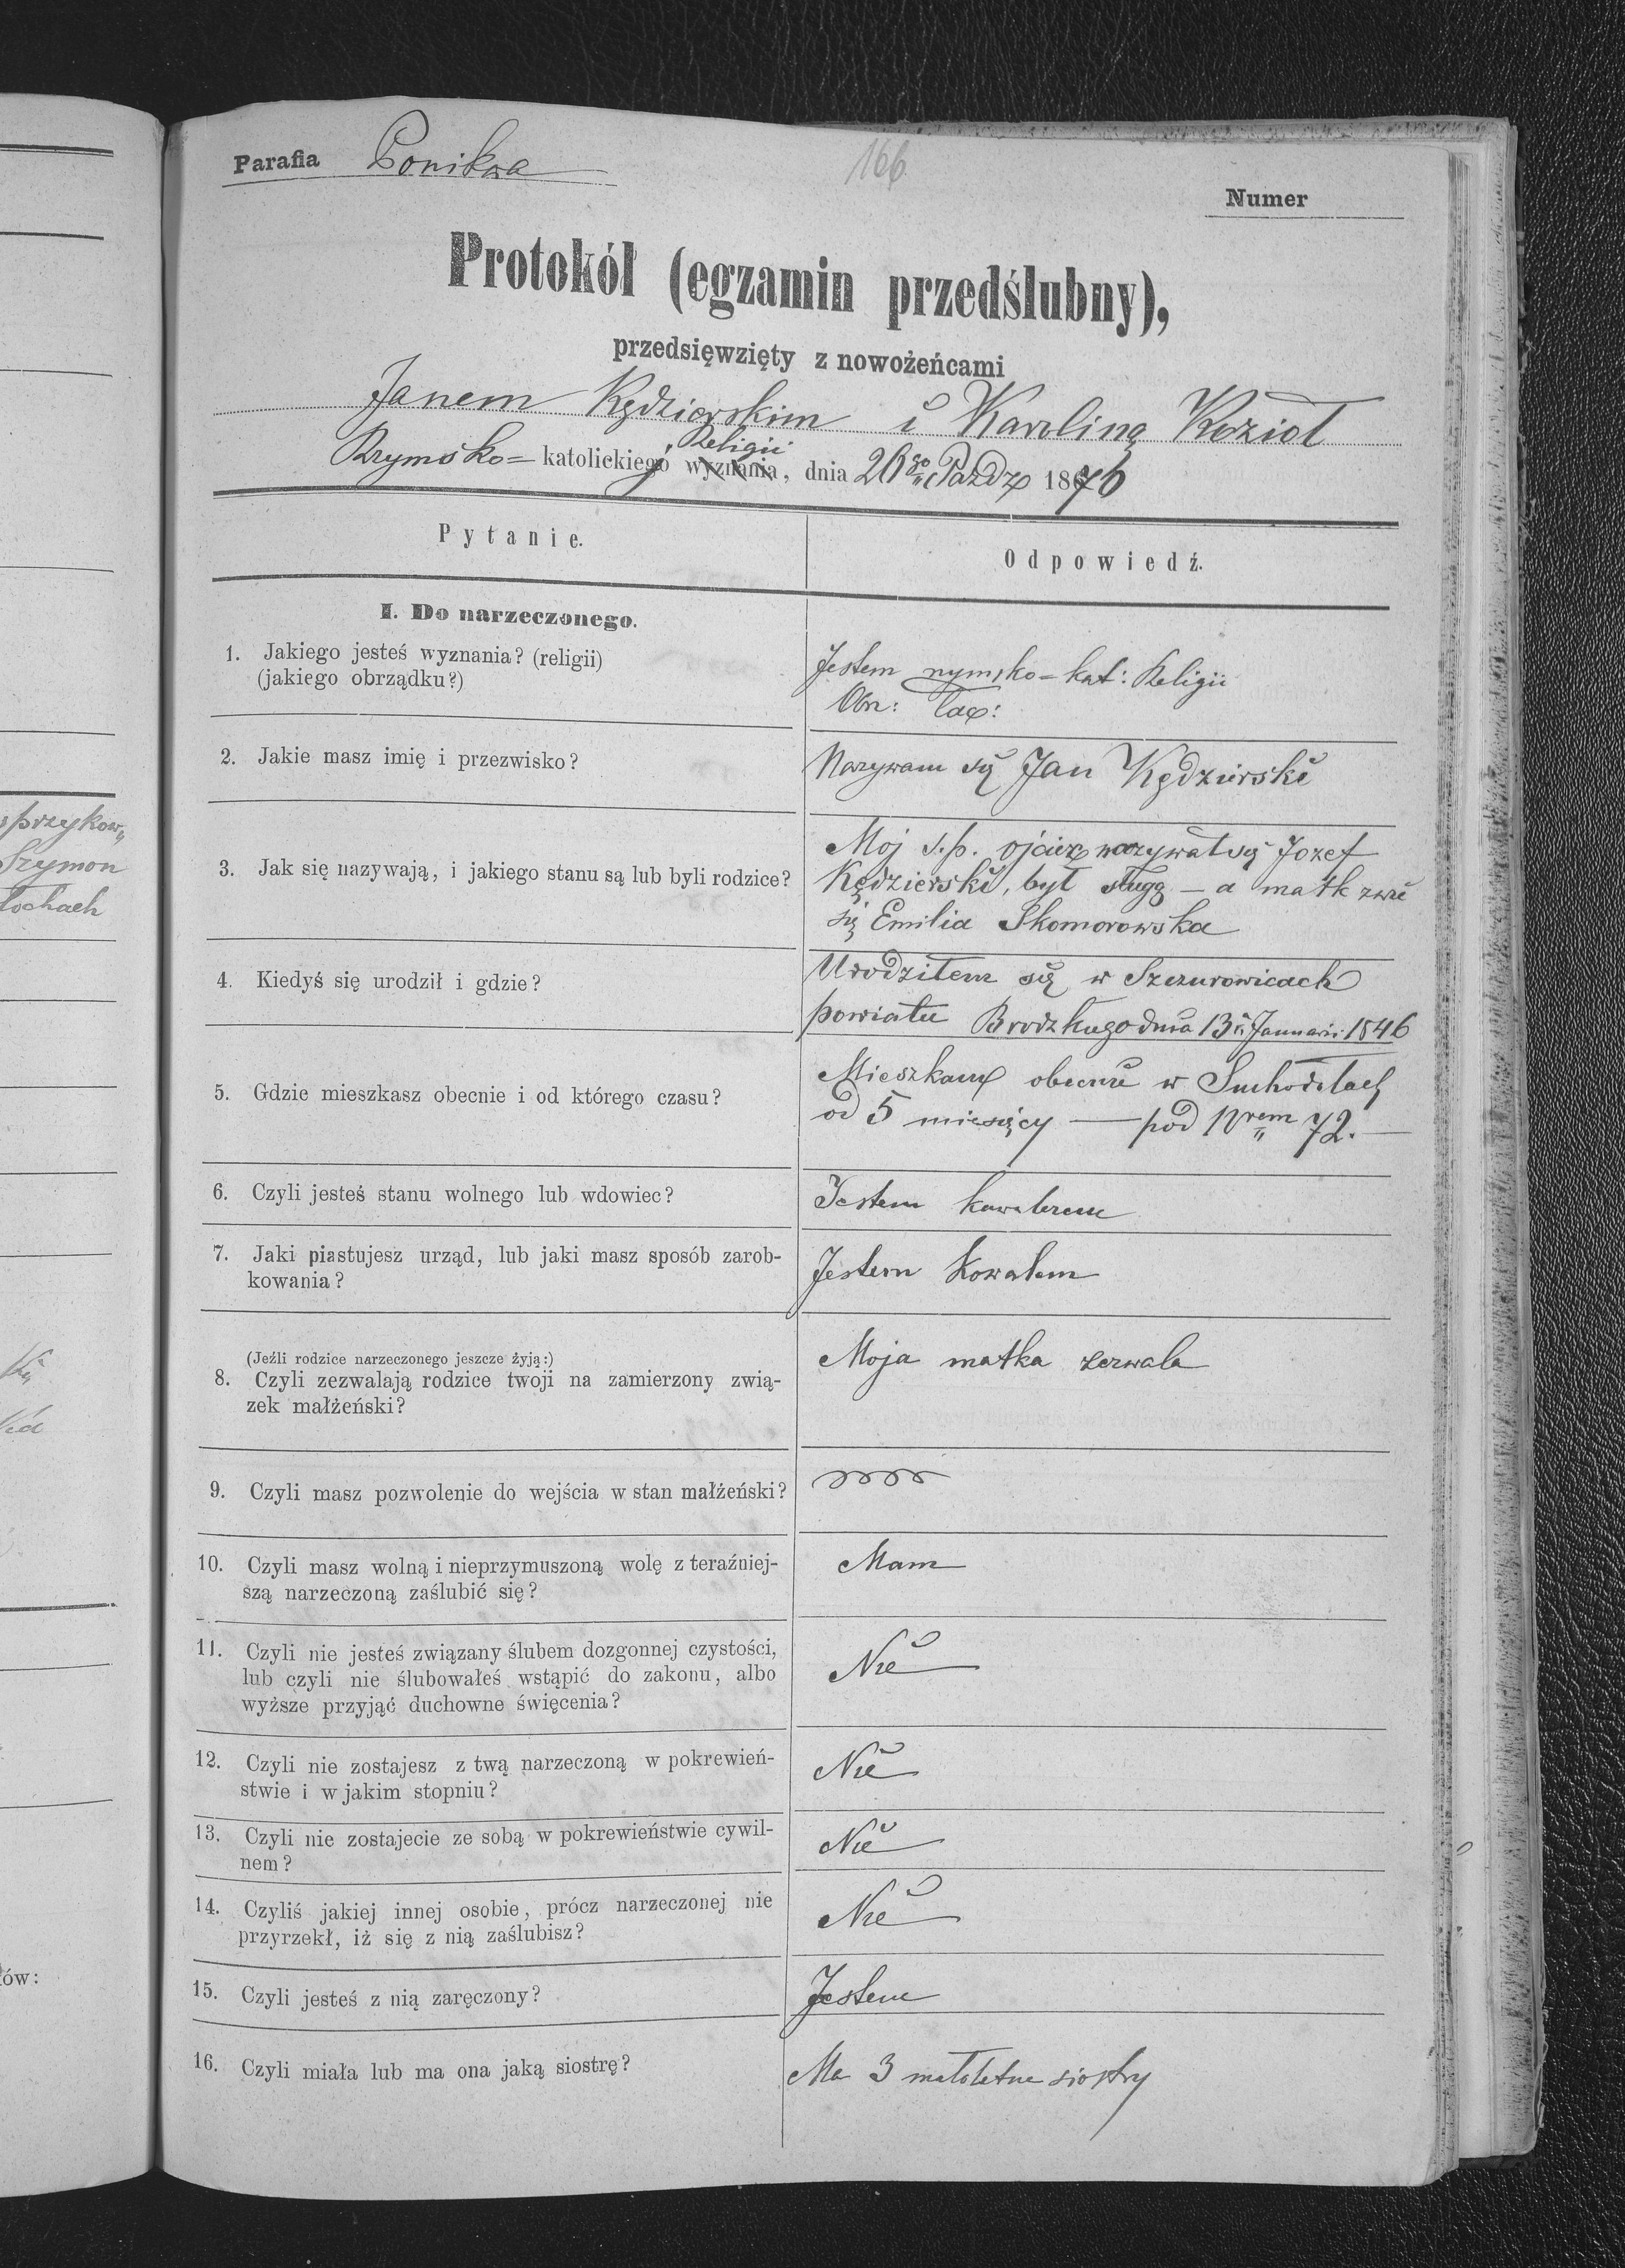 Parafia Ponikwa
166
Numer
Protokół (egzamin przedślubny),
przedsięwzięty z nowożeńcami
Janem Kędzierskim i Karoliną Kozioł
Religii
Rzymsko= katolickiego wyznania, dnia 26go Paźdz 1876
Pytanie.
Odpowiedź.
I. Do narzeczonego.
1. Jakiego jesteś wyznania? (religii)
(jakiego obrządku?)
Jestem rzymsko=kat: Religii
Obrz: łac:
2. Jakie masz imię i przezwisko?
Nazywam się Jan Kędzierski
3. Jak się nazywają, i jakiego stanu są lub byli rodzice?
Moj ś.p. ojciec nazywał się Jozef
Kędzierski, był sługą – a matk zwie
się Emilia Skomorowska
4. Kiedyś się urodził i gdzie?
Urodziłem się w Szczurowicach
powiatu Brodzkiego dnia 13 Januarii 1846
5. Gdzie mieszkasz obecnie i od którego czasu?
Mieszkam obecnie w Suchodołach
od 5 miesięcy — pod Nrem 72. —
6. Czyli jesteś stanu wolnego lub wdowiec?
Jestem kawalerem
7. Jaki piastujesz urząd, lub jaki masz sposób zarob-
kowania?
Jestem Kowalem
(Jeźli rodzice narzeczonego jeszcze żyją:)
8. Czyli zezwalają rodzice twoji na zamierzony zwią-
zek małżeński?
Moja matka zezwala
9. Czyli masz pozwolenie do wejścia w stan małżeński?
10. Czyli masz wolną i nieprzymuszoną wolę z teraźniej-
szą narzeczoną zaślubić się?
Mam
11. Czyli nie jesteś związany ślubem dozgonnej czystości,
lub czyli nie ślubowałeś wstąpić do zakonu, albo
wyższe przyjąć duchowne święcenia?
Nie
12. Czyli nie zostajesz z twą narzeczoną w pokrewień-
stwie i w jakim stopniu?
Nie
13. Czyli nie zostajecie ze sobą w pokrewieństwie cywil-
nem?
Nie
14. Czyliś jakiej innej osobie, prócz narzeczonej nie
przyrzekł, iż się z nią zaślubisz?
Nie
15. Czyli jesteś z nią zaręczony?
Jestem
16. Czyli miała lub ma ona jaką siostrę?
Ma 3 małoletne siostry
przykow
Szymon
łochach
ów: